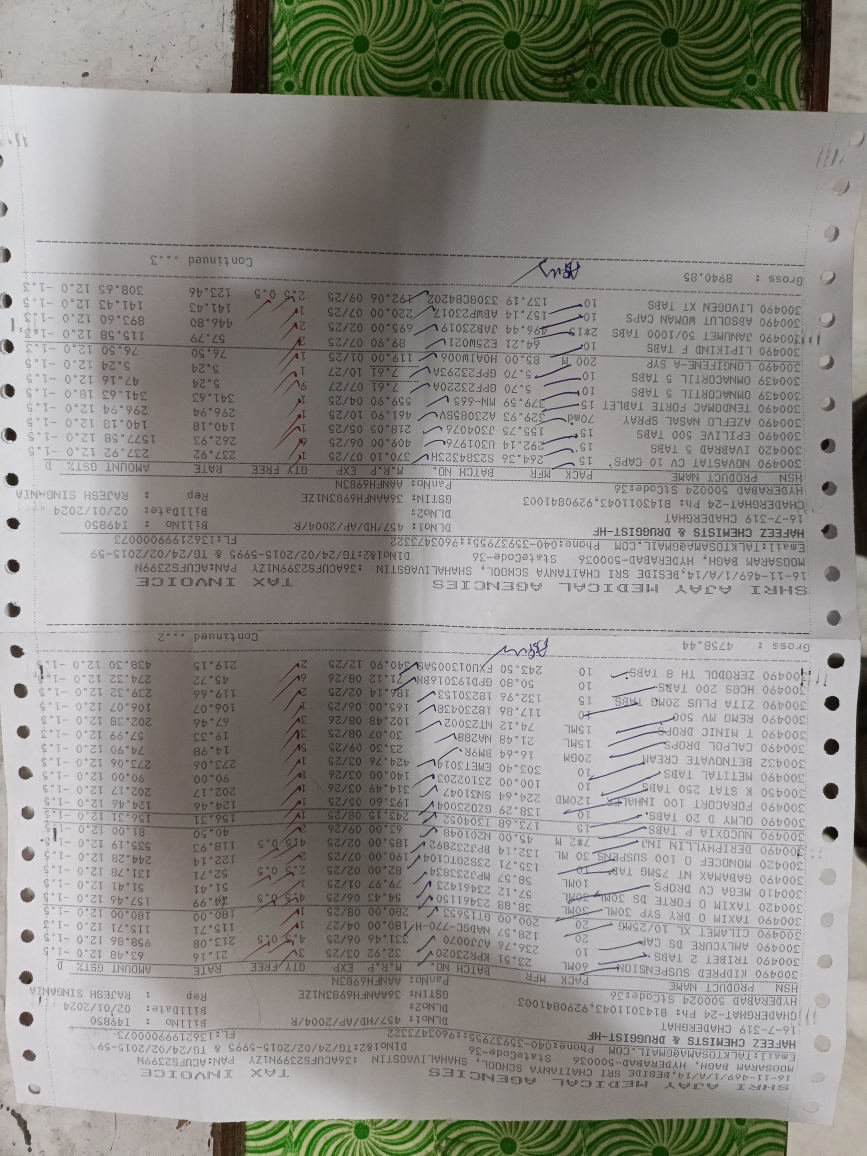 SHRI AJAY MEDICAL AGENCIES TAX INVOICE
16-11-469/1/A/14,BESIDE SRI CHAITANYA SCHOOL, SHAHALIVAGSTIN :36ACUFS2399N1ZY PAN:ACUFS2399N
MOOSARAM BAGH, HYDERABAD-500036 StateCode-36 DlNo1&2:TG/24/02/2015-5995 & TG/24/02/2015-59
Email:TALKTOSAMA@GMAIL.COM Phone:040-35937955::9603473322 FL:13621999000073
HAFEEZ CHEMISTS & DRUGGIST-HF
16-7-319 CHADERGHAT DLNo1: 457/HD/AP/2004/R BillNo : I49850
CHADERGHAT-24 Ph: 8143011043,9290841003 DLNo2: BillDate: 02/01/2024
HYDERABAD 500024 StCode:36 GSTIN: 36AANFH6983N1ZE Rep : RAJESH SINGANIA
PanNo: AANFH6983N
HSN PRODUCT NAME PACK MFR BATCH NO. M.R.P EXP QTY FREE RATE AMOUNT GST% D
300490 KIDPRED SUSPENSION 60ML 23.51 KPR23020 32.92 03/25 3 21.16 63.48 12.0
300490 TRIBET 2 TABS 20 236.76 331.46 06/25 4.5 0.5 213.08 958.86 12.0 -1.5
300490 AMLYCURE DS CAP 20 128.57 NADSC-770-H 180.00 04/27 1 115.71 115.71 12.0 -1.5
300490 CILAMET XL 10/25MG 10 200.00 280.00 08/25 1 180.00 180.00 12.0 -1.5
300490 TAXIM O DRY SYP 30ML 38.88 23461150 54.43 06/25 4.5 0.5 34.99 157.46 12.0 -1.5
300420 TAXIM O FORTE DS 30ML 57.12 23461423 79.97 01/25 1 51.41 51.41 12.0 -1.5
300410 MEGA CV DROPS 10ML 58.57 MPJ23383A 82.00 2.5 0.5 52.71 131.78 12.0 -1.5
300490 GABAMAX NT 75MG TAB 10 135.71 23S2GTC1104 190.00 07/25 2 122.14 244.28 12.0 -1.5
300420 MONOCEF O 100 SUSPENS 30 ML 132.14 BPJ23292 185.00 02/25 4.5 0.5 118.93 535.19 12.0 -1.5
300490 DERIPHYLLIN INJ 7*2 M 45.00 NZ01048 63.00 09/26 2 40.50 81.00 12.0 -1.5
300490 NUCOXIA P TABS 15 173.68 J304052 243.15 08/26 1 156.31 156.31 12.0 -1.5
300490 OLMY D 20 TABS 10 138.29 GZD23004 193.60 05/25 1 124.46 124.46 12.0 -1.5
300490 FORACORT 100 INHALER 120MD 224.64 SN31047 314.49 03/25 1 202.17 202.17 12.0 -1.5
300450 K STAT 250 TABS 10 100.00 23102203 140.00 03/26 1 90.00 90.00 12.0 -1.5
300490 METITAL TABS 10 303.40 EMET3014 424.76 03/25 1 273.06 273.06 12.0 -1.5
300432 BETNOVATE CREAM 20GM 16.64 BM9R 23.30 09/25 5 14.98 74.90 12.0 -1.5
300490 CALPOL DROPS 15ML 21.48 NA288 30.07 08/25 3 19.33 57.99 12.0 -1.3
300490 T MINIC DROPS 15ML 74.12 NTZ3002 102.48 08/26 3 67.46 202.38 12.0 -1.5
300490 REMO MV 500 10 117.86 18230438 165.00 06/25 1 106.07 106.07 12.0 -1.5
300490 ZITA PLUS 20MG TABS 15 132.96 18230153 186.14 02/25 2 119.66 239.32 12.0 -1.5
300490 HCQS 200 TABS 10 50.80 71.12 08/26 6 45.72 274.32 12.0 -1.5
300490 ZERODOL TH 8 TABS 10 243.50 FXU013005AS 340.90 12/25 2 219.15 438.30 12.0 -1.5
Gross : 4758.44 Continued ...2
SHRI AJAY MEDICAL AGENCIES TAX INVOICE
16-11-469/1/A/14,BESIDE SRI CHAITANYA SCHOOL, SHAHALIVAGSTIN :36ACUFS2399N1ZY PAN:ACUFS2399N
MOOSARAM BAGH, HYDERABAD-500036 StateCode-36 DlNo1&2:TG/24/02/2015-5995 & TG/24/02/2015-59
Email:TALKTOSAMA@GMAIL.COM Phone:040-35937955::9603473322 FL:13621999000073
HAFEEZ CHEMISTS & DRUGGIST-HF
16-7-319 CHADERGHAT DLNo1: 457/HD/AP/2004/R BillNo : I49850
CHADERGHAT-24 Ph: 8143011043,9290841003 DLNo2: BillDate: 02/01/2024
HYDERABAD 500024 StCode:36 GSTIN: 36AANFH6983N1ZE Rep : RAJESH SINGANIA
PanNo: AANFH6983N
HSN PRODUCT NAME PACK MFR BATCH NO. M.R.P EXP QTY FREE RATE AMOUNT GST% D
300490 NOVASTAT CV 10 CAPS 15 264.36 S23B4323H 370.10 12/24 1 237.92 237.92 12.0 -1.5
300490 IVABRAD 5 TABS 15 292.14 U301976 409.00 06/25 6 262.93 1577.58 12.0 -1.5
300490 EPILIVE 500 TABS 15 155.75 J304076 218.05 05/25 1 140.18 140.18 12.0 -1.5
300490 AZEFLO NASAL SPRAY 70md 329.93 A230855V 461.90 10/25 1 296.94 296.94 12.0 -1.5
300490 TENDOMAC FORTE TABLET 15 379.59 MN-665 559.90 04/25 1 341.63 341.63 18.0 -1.5
300439 OMNACORTIL 5 TABS 10 5.70 GPF22320A 7.61 07/27 9 5.24 47.16 12.0 -1.5
300439 OMNACORTIL 5 TABS 10 5.70 GPF23293A 7.61 10/27 1 5.24 5.24 12.0 -1.5
300490 LONGIFENE-A SYP 200 M 85.00 HOAIM006 119.00 01/25 1 76.50 76.50 12.0 -1.3
300490 LIPIKIND F TABS 10 64.21 E2SW021 89.90 07/25 2 57.79 115.58 12.0 -1.5
300490 JANUMET 50/1000 TABS 2*15 496.44 JAB23019 695.00 02/25 2 446.80 893.60 12.0 -1.5
300490 ABSOLUT WOMAN CAPS 10 157.14 ABWP23017 220.00 07/25 1 141.43 141.43 12.0 -1.5
300490 LIVOGEN XT TABS 10 137.19 330C84202 192.06 09/25 2.5 0.5 123.46 308.65 12.0 -1.3
Gross : 8940.85 Continued ...3